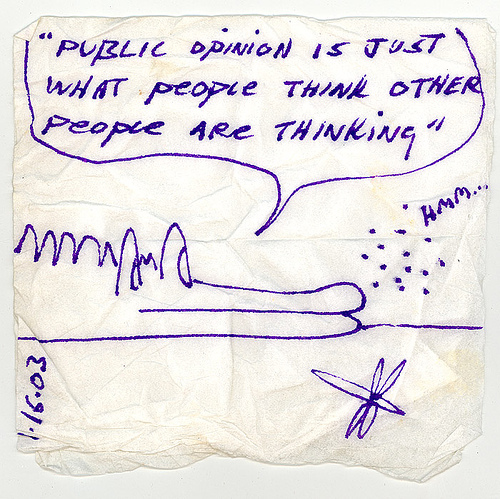 "PUBLIC OPINION IS JUST
WHAT PEOPLE THINK OTHER
PEOPLE ARE THINKING"
HMM...
1.16.03